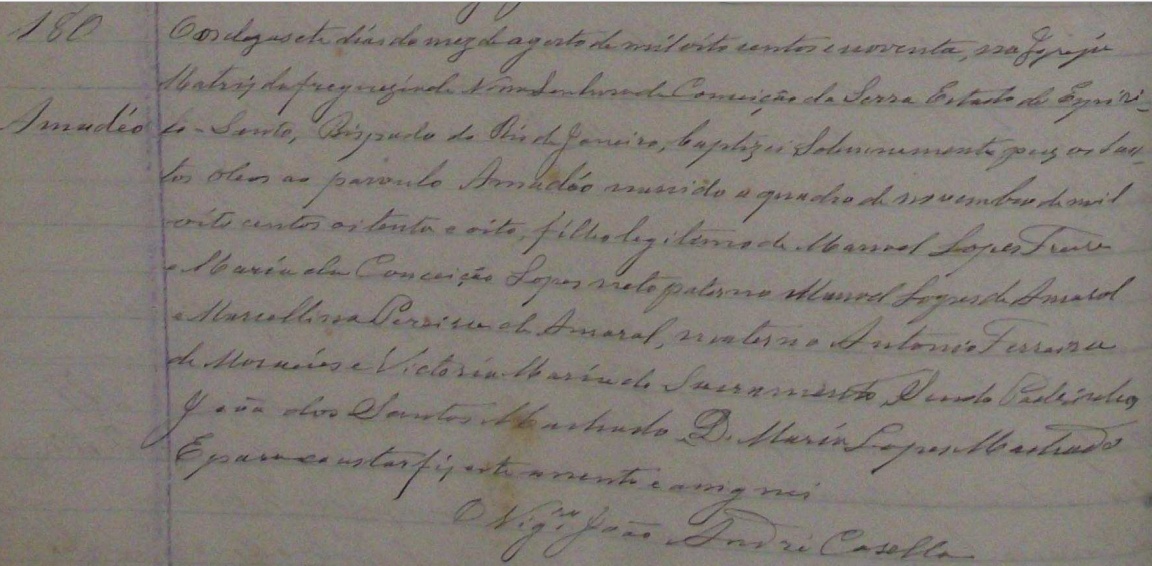 180
Aos desasete dias do mez de agosto de mil oito centos e noventa, na Igreja
Matriz da freguezia de Nossa Senhora da Conceição da Serra Estado do Espiri-
Amadéo
to-Santo, Bispado do Rio de Janeiro, baptizei Solemnemente puz os San-
tos óleos ao parvulo Amadéo nascido a quadro de novembro de mil
oito centos oitenta e oito, filho legitimo de Manoel Lopes Freire
e Maria da Conceição Lopes neto paterno Manoel Lopes do Amaral
e Marcellina Pereira do Amaral, materno Antonio Ferreira
de Moraes e Victoria Maria do Sacramento, Sendo Padrinhos
João dos Santos Machado D. Maria Lopes Machado
E para constar fiz este assento e assignei
O Vigrº João André Casella